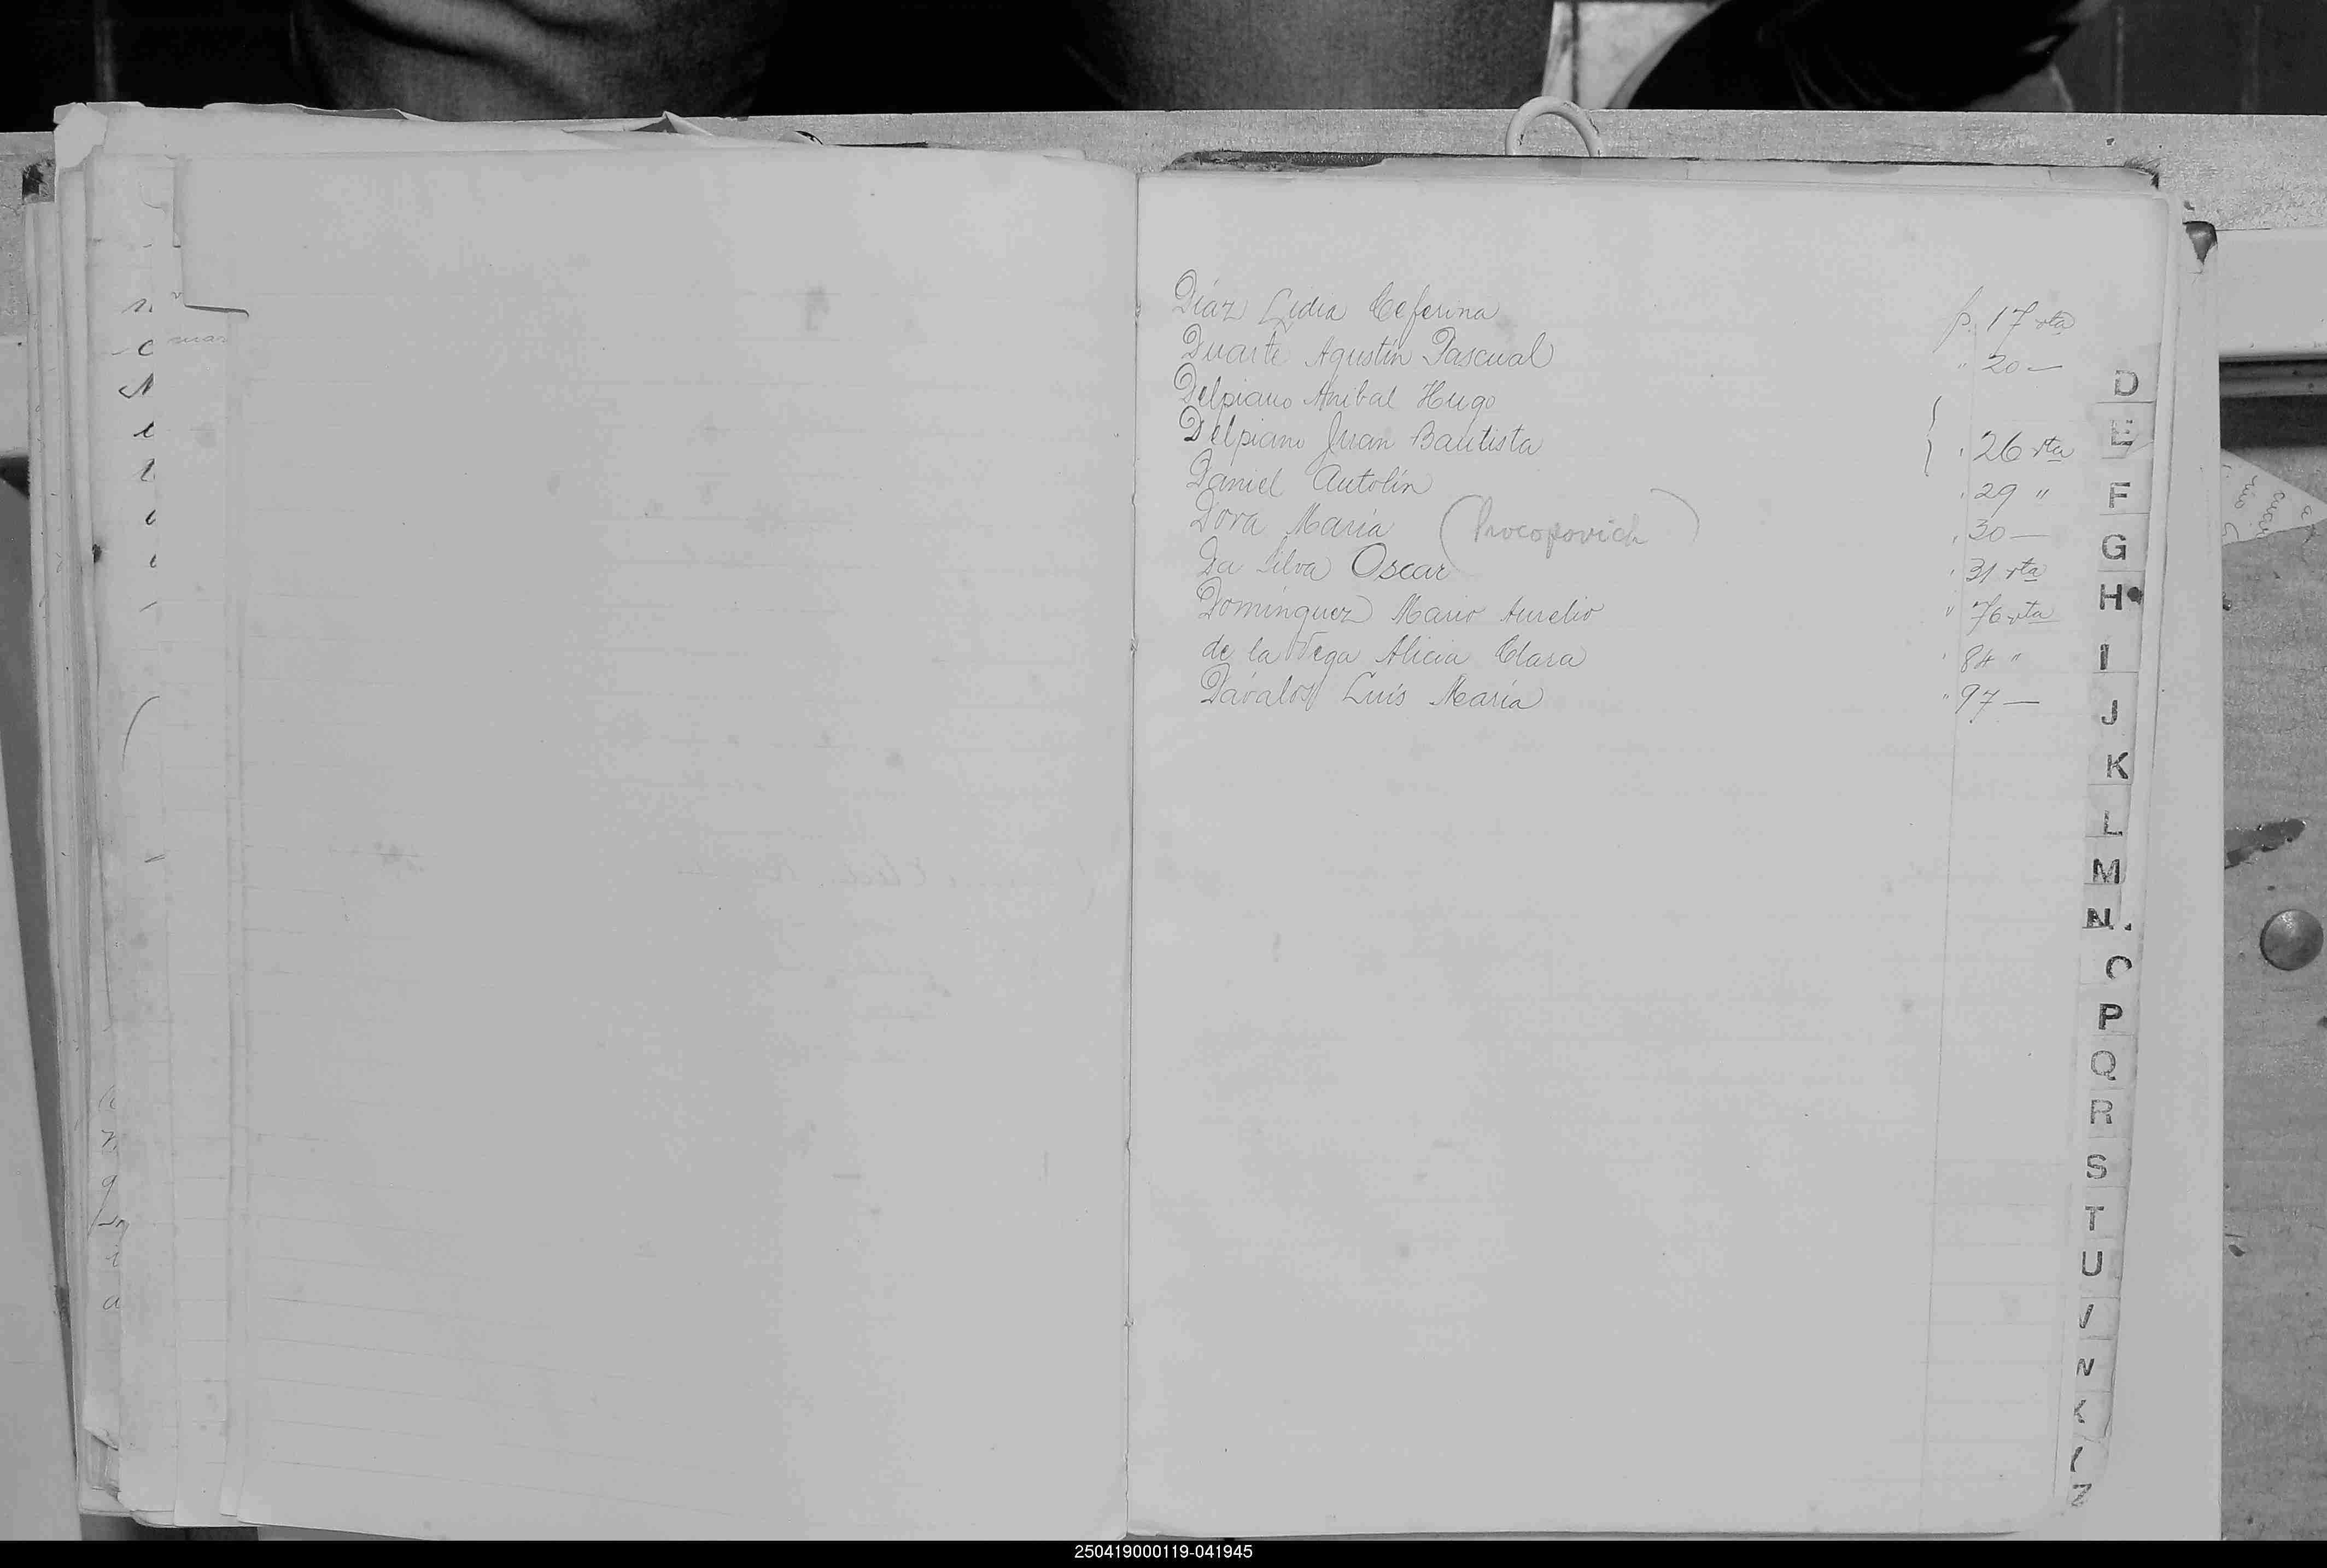 Díaz Lidia Ceferina p. 17 vta
Duarte Agustín Pascual " 20 —
Delpiano Anibal Hugo
Delpiano Juan Bautista " 26 vta
Daniel Antolín " 29 "
Dora María (Procopovich) " 30 —
Da Silva Oscar " 31 vta
Domínguez Mario Aurelio " 76 vta
de la Vega Alicia Clara " 84 "
Dávalos Luis María " 97 —
D
E
F
G
H
I
J
K
L
M
N.
O
P
Q
R
S
T
U
V
Z
250419000119-041945